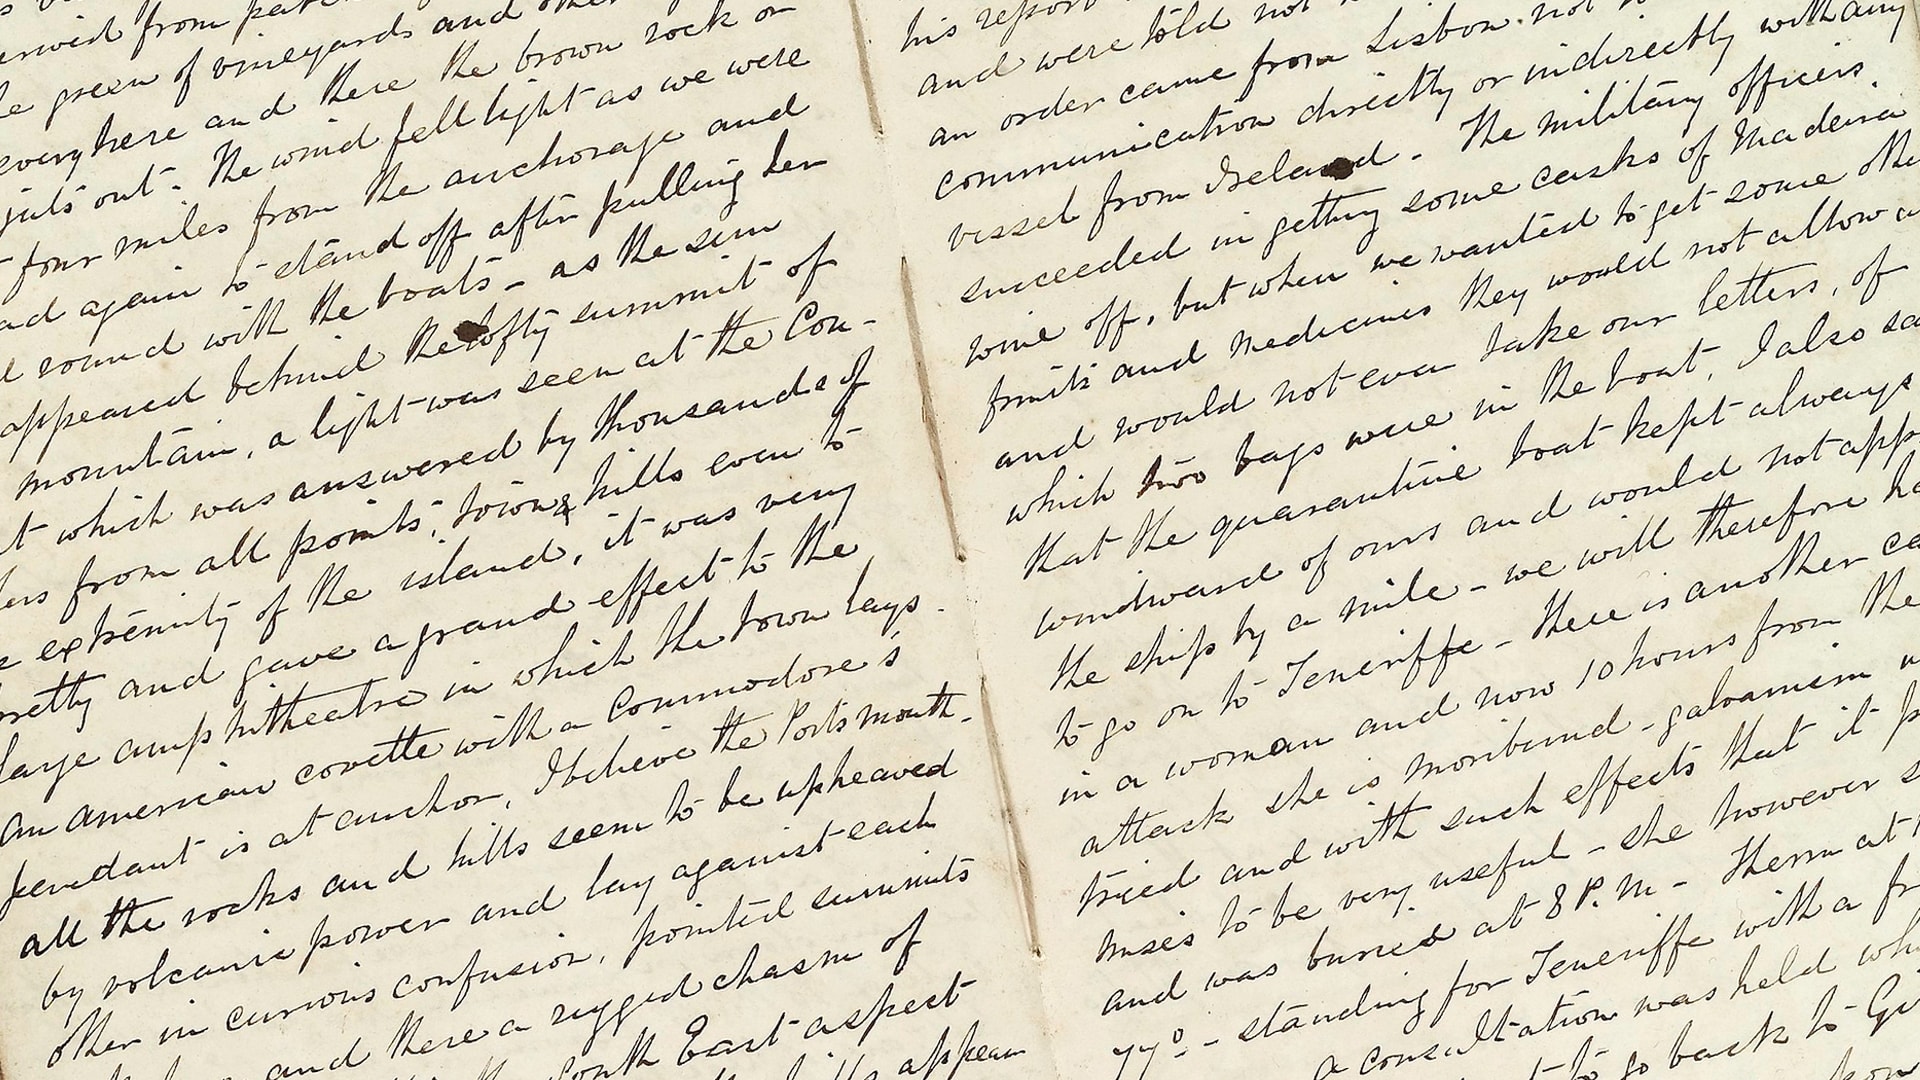 from
green of vineyards and other
everyhere and there the brown rock or
juts out. The wind fell light as we were
four miles from the anchorage and
again to stand off after pulling her
round with the boats - as the sun
appeared behind the lofty summit of
mountain, a light was seen at the Con-
t which was answered by thousands of
from all points, town & hills even to
extremity of the island, it was very
pretty and gave a grand effect to the
large amphitheatre in which the town lays.
An American corvette with a Commodore's
pendant is at anchor, I believe the Portsmouth.
all the rocks and hills seem to be upheaved
by volcanic power and lay against each
other in curious confusion, pointed summits
and there a rugged chasm of
South East aspect
appear
his report
and were told not
an order came from Lisbon not
communication directly or indirectly with any
vessel from Ireland. The military officers
succeeded in getting some casks of Madeira
wine off, but when we wanted to get some othe
fruits and medicines they would not allow
and would not even take our letters, of
which two bags were in the boat, I also sa
that the quarantine boat kept always
windward of ours and would not app
the ship by a mile - we will therefore ha
to go on to Teneriffe - there is another ca
in a woman and now 10 hours from the
attack she is moribund - galvanism w
tried and with such effects that it p
mises to be very useful - she however s
and was buried at 8 P.M - Therm at
77° - standing for Teneriffe with a fr
A consultation was held wh
to go back to Gi